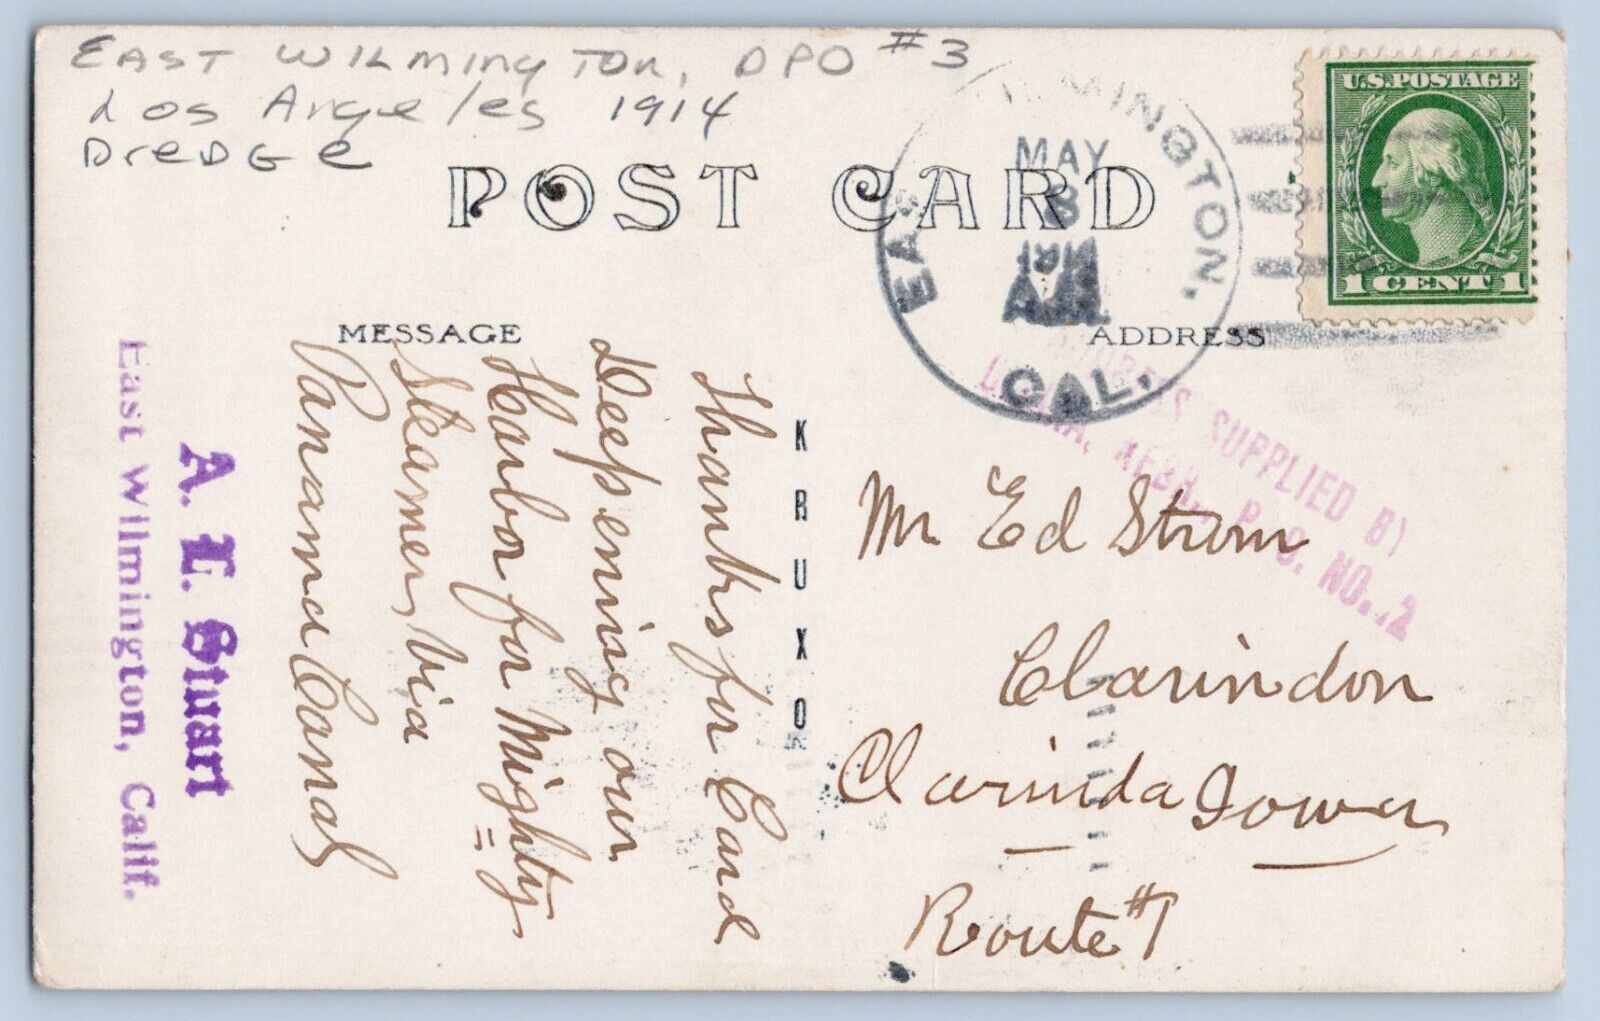 EAST WILMINGTON, DPO #3
Los Angeles 1914
DreDGe
POST CARD
U.S. POSTAGE
1 CENT 1
EAST WILMINGTON,
MAY
8
1914
CAL.
MESSAGE
ADDRESS
Thanks for Card
Deepening our
Harbor for Mighty
Steamers via
Panama Canal
A. E. Stuart
East Wilmington, Calif.
KRUXO
SUPPLIED BY
NEBR., P. O. NO. 2
Mr Ed Strom
Clarindon
Clarinda Iowa
Route #1